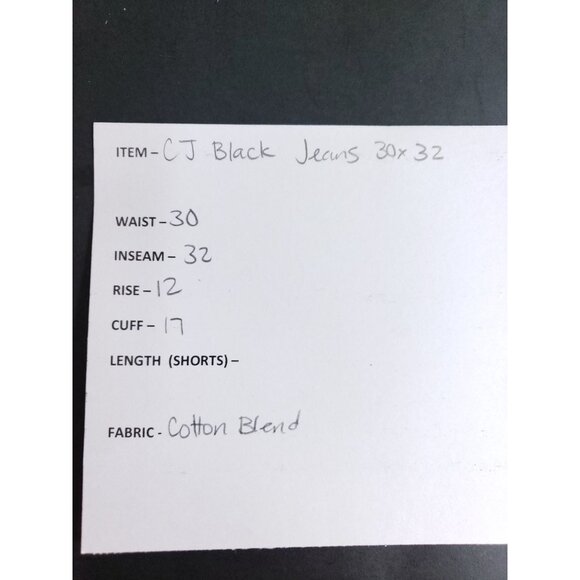 ITEM – CJ Black Jeans 30x32
WAIST – 30
INSEAM – 32
RISE – 12
CUFF – 17
LENGTH (SHORTS) –
FABRIC - Cotton Blend